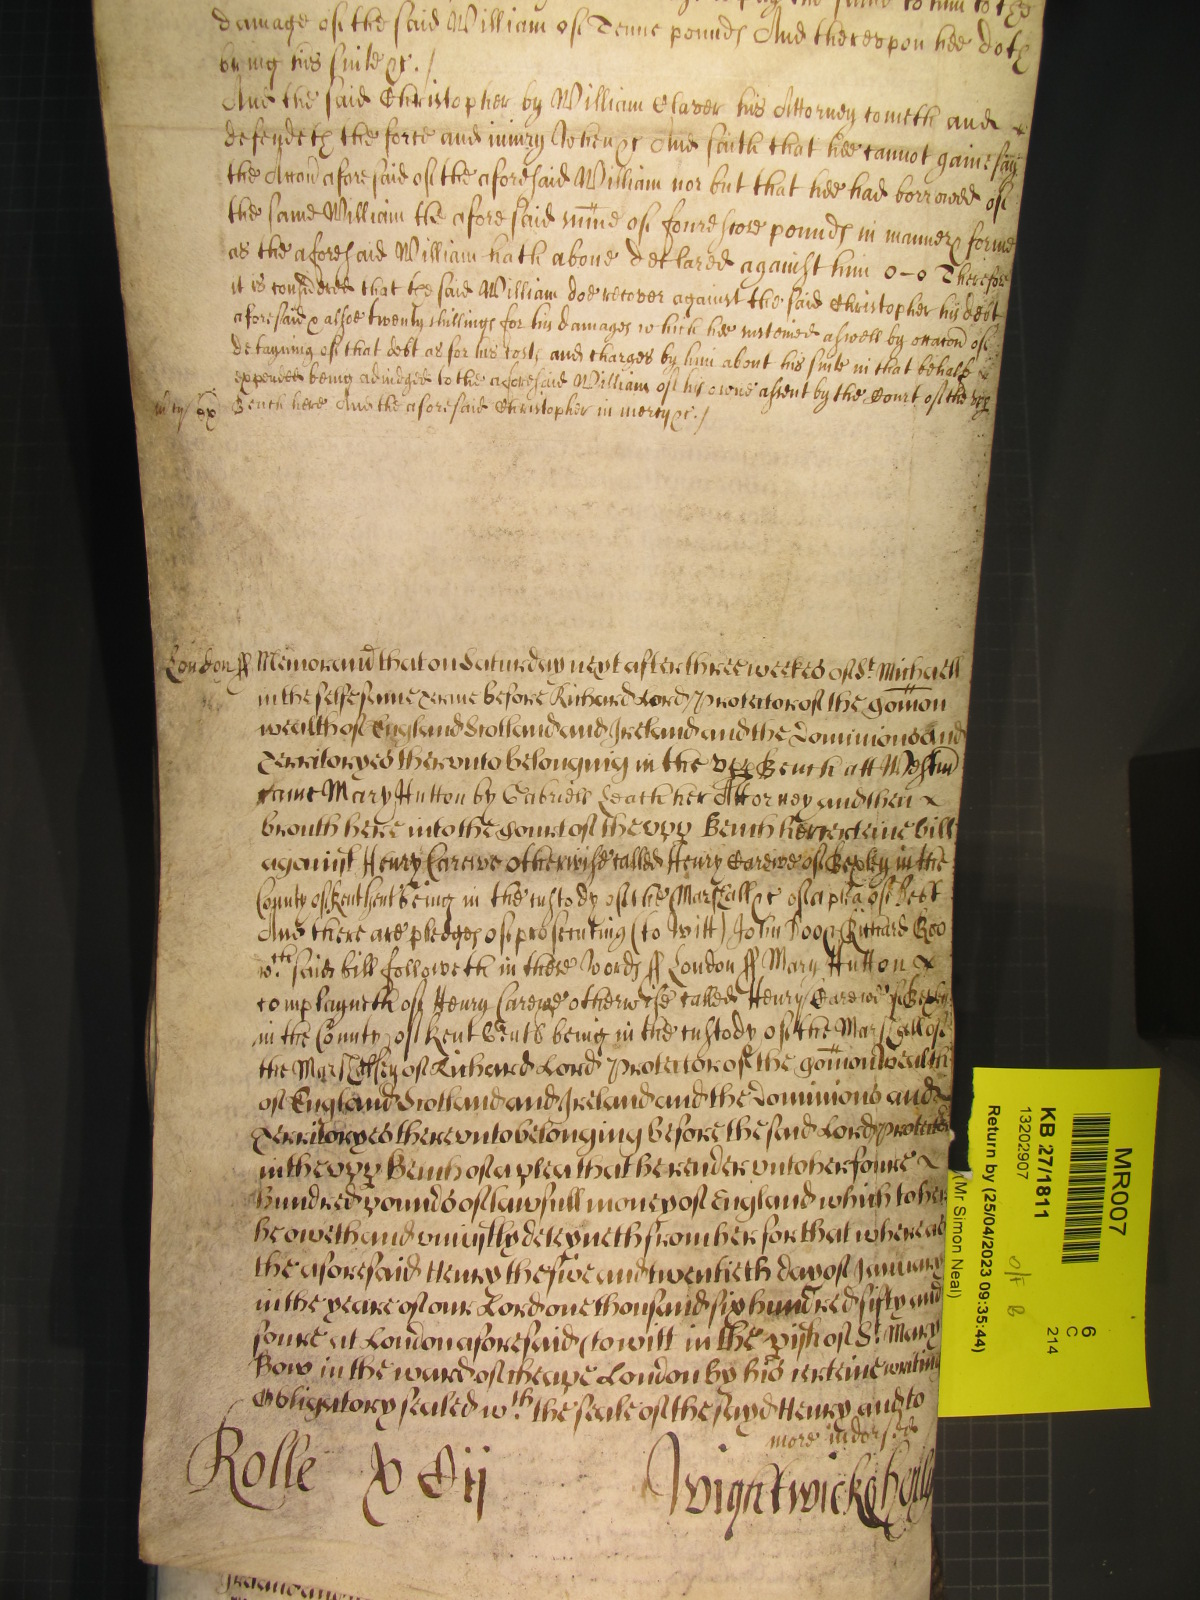 damage of the said William of Tenne pounds And thereupon hee doth
bring his suite &c. /
And the said Christopher by William Claver his Attorney cometh and
defendeth the force and iniury when &c And saith that hee cannot gainesay
the Accon aforesaid of the aforesaid William nor but that hee had borrowed of
the same William the aforesaid sume of foure score pounds in manner & forme
as the aforesaid William hath above declared against him o-o Therefore
it is considered that the said William doe recover against the said Christopher his debt
aforesaid & alsoe twenty shillings for his damages which hee susteined aswell by occacon of
detayning of that debt as for his costs and charges by him about his suite in that behalfe
expended being adiudged to the aforesaid William of his owne assent by the Court of the upp
Bench here And the aforesaid Christopher in mercy &c. /
London ss Memorand that on Saturday next after three weekes of St Michaell
in the selfesame Terme before Richard Lord Protector of the Comon
wealth of England Scotland and Ireland and the Dominions and
Territoryes thereunto belonging in the upp Bench att Westm
came Mary Hutton by Gabriell Leach her Attorney and then
brouth here into the Court of the upp Bench her certeine bill
against Henry Carewe otherwise called Henry Carewe of Bexley in the
County of Kent Gent being in the custody of the Marshall &c of a plea of Debt
And there are pledges of prosecuting (to witt) John Doo & Richard Roo
wch said bill followeth in these words ss London ss Mary Hutton
complayneth of Henry Carewe otherwise called Henry Carewe of Bexley
in the County of Kent Gent being in the custody of the Marshall of
the Marshalsey of Richard Lord Protector of the Comonwealth
of England Scotland and Ireland and the Dominions and
Territoryes thereunto belonging before the said Lord Protector
in the upp Bench of a plea that he render unto her foure
hundred pounds of lawfull money of England which to her
he oweth and uniustly deteyneth from her for that whereas
the aforesaid Henry the five and twentieth day of January
in the yeare of our Lord one thousand six hundred fifty and
foure at London aforesaid (to witt in the pish of St Mary
Bow in the ward of Cheape London by his certeine writing
Obligatory sealed wth the seale of the sayd Henry and to
more indorsed
Rolle
Wightwicke
MR007
KB 27/1811
13202907
Return by (25/04/2023 09:35:44)
(Mr Simon Neal)
6
C
214